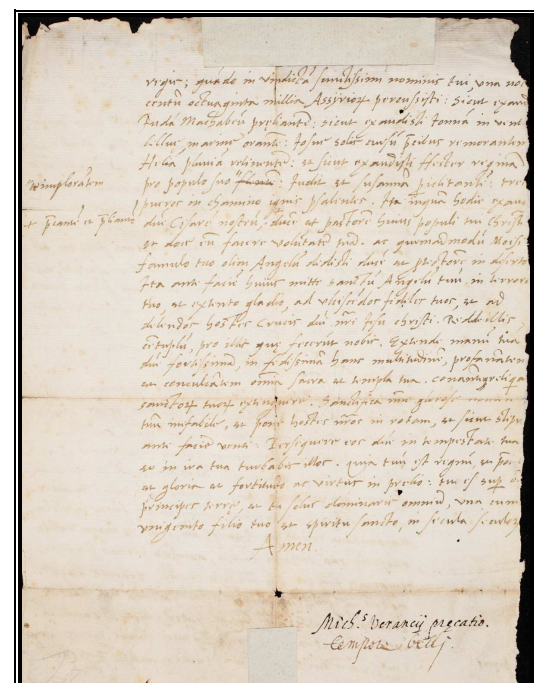 regis; quãdo in vindictã sanctissimi nominis tui, una noc
centũ octuaginta millia Assyrioꝝ percussisti: sicut exau
Juda Machabeũ preliantẽ: sicut exaudisti Jonnã in vent
illius maris orantẽ: Josue solis cursũ
Helia pluvia retinentẽ: et sicut exaudisti Hester reginã
pro populo suo Judit et susannã
pueros in chamino ignis psalentes. Ita inquã hodie exau
dñe Cesarẽ nostrũ, ducẽ et pastorẽ huius populi tui Christi
et doce eũ facere volũtatẽ tuã. ac quemadmodũ Moisi
famulo tuo olim Angelũ dedisti ducẽ et in deserto
Ita ante faciẽ huius mitte sanctũ Angelũ tuũ, in terrore
tuo, et extento gladio, ad fideles tuos, et ad
delendos hostes Crucis dñi nři Jesu christi. Redde illis
pro iis que fecerũt nobis. Extende manũ tuã
dñe fortissimã, in fedissimã hanc multitudinẽ, profanãtem
et conculcãtem omia sacra et templa tua.
sanctoꝝ tuoꝝ extinguere. Sanctifica
tuũ et pone hostes nřos in rotam, et sicut stipu
ante faciẽ venti. Persequere eos dñe in tempestate tua
et in ira tua turbabis illos. quia tuũ est regnũ, et
et gloria et fortitudo ac virtus in prelio: tu es sup
principes terre, et tu solus dominaris omniũ, una cum
unigenito filio tuo et spiritu sancto, in secula seculoꝝ
Amen.
Mich.s Verancij precatio.
tempore belli.